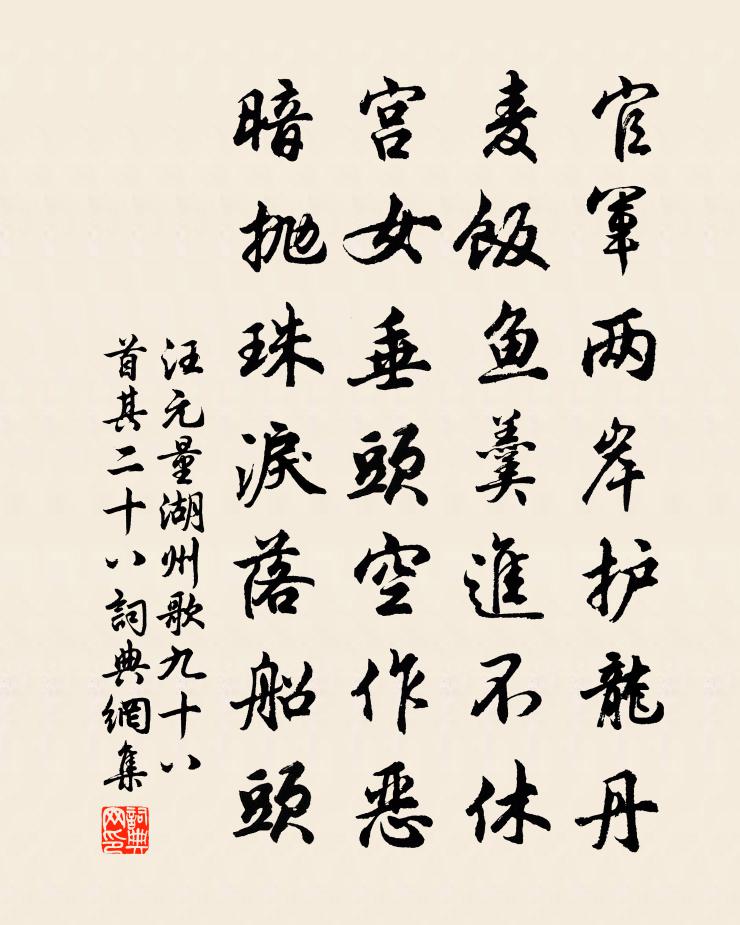 官軍两岸护龍丹
麦飯鱼羹進不休
宫女垂頭空作恶
暗抛珠淚落船頭
汪元量湖州歌九十八
首其二十八詞典網集
詞典网印